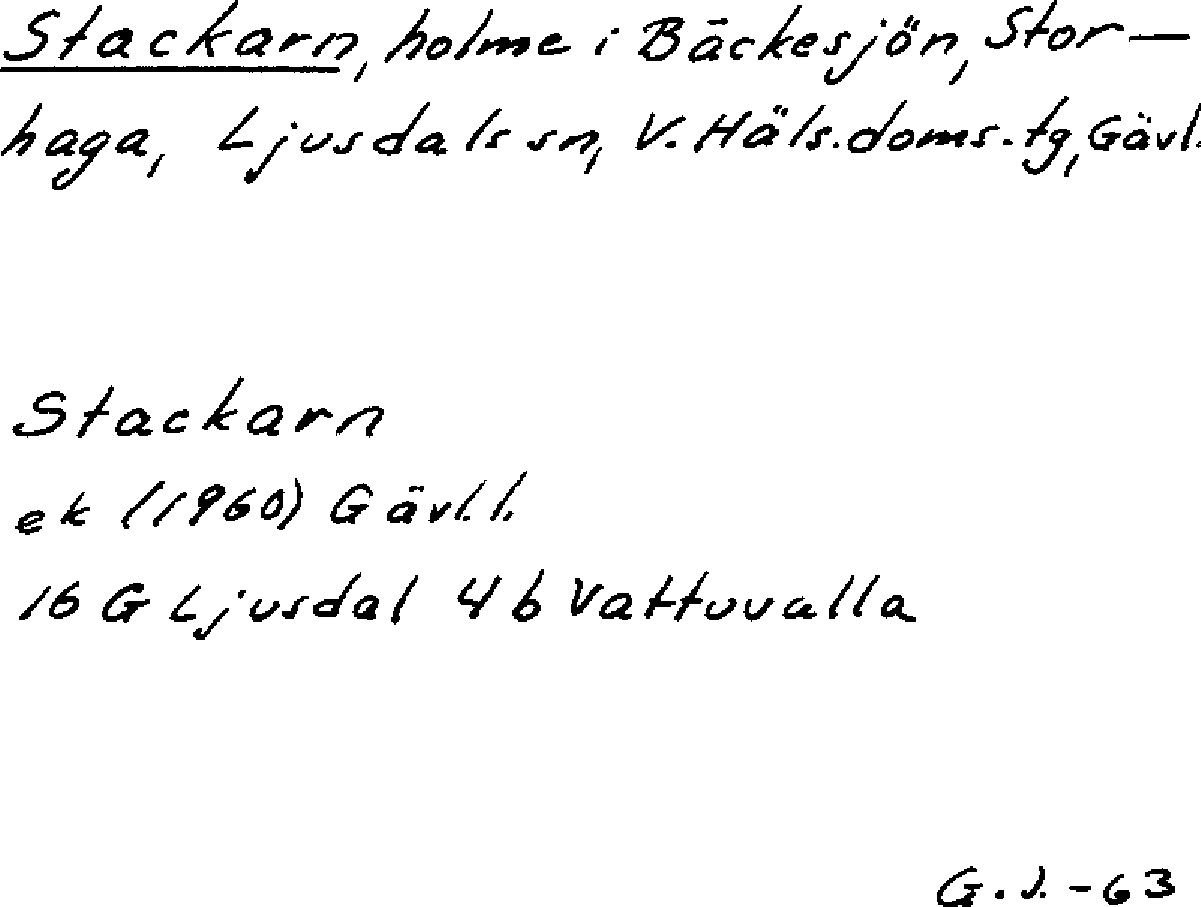 Stackarn, holme i Bäckesjön, Stor-
haga, Ljusdals sn, V. Häls. doms. tg, Gävl.
Stackarn
ek (1960) Gävl. l.
16 G Ljusdal 4 b Vattuvalla
G. J. -63